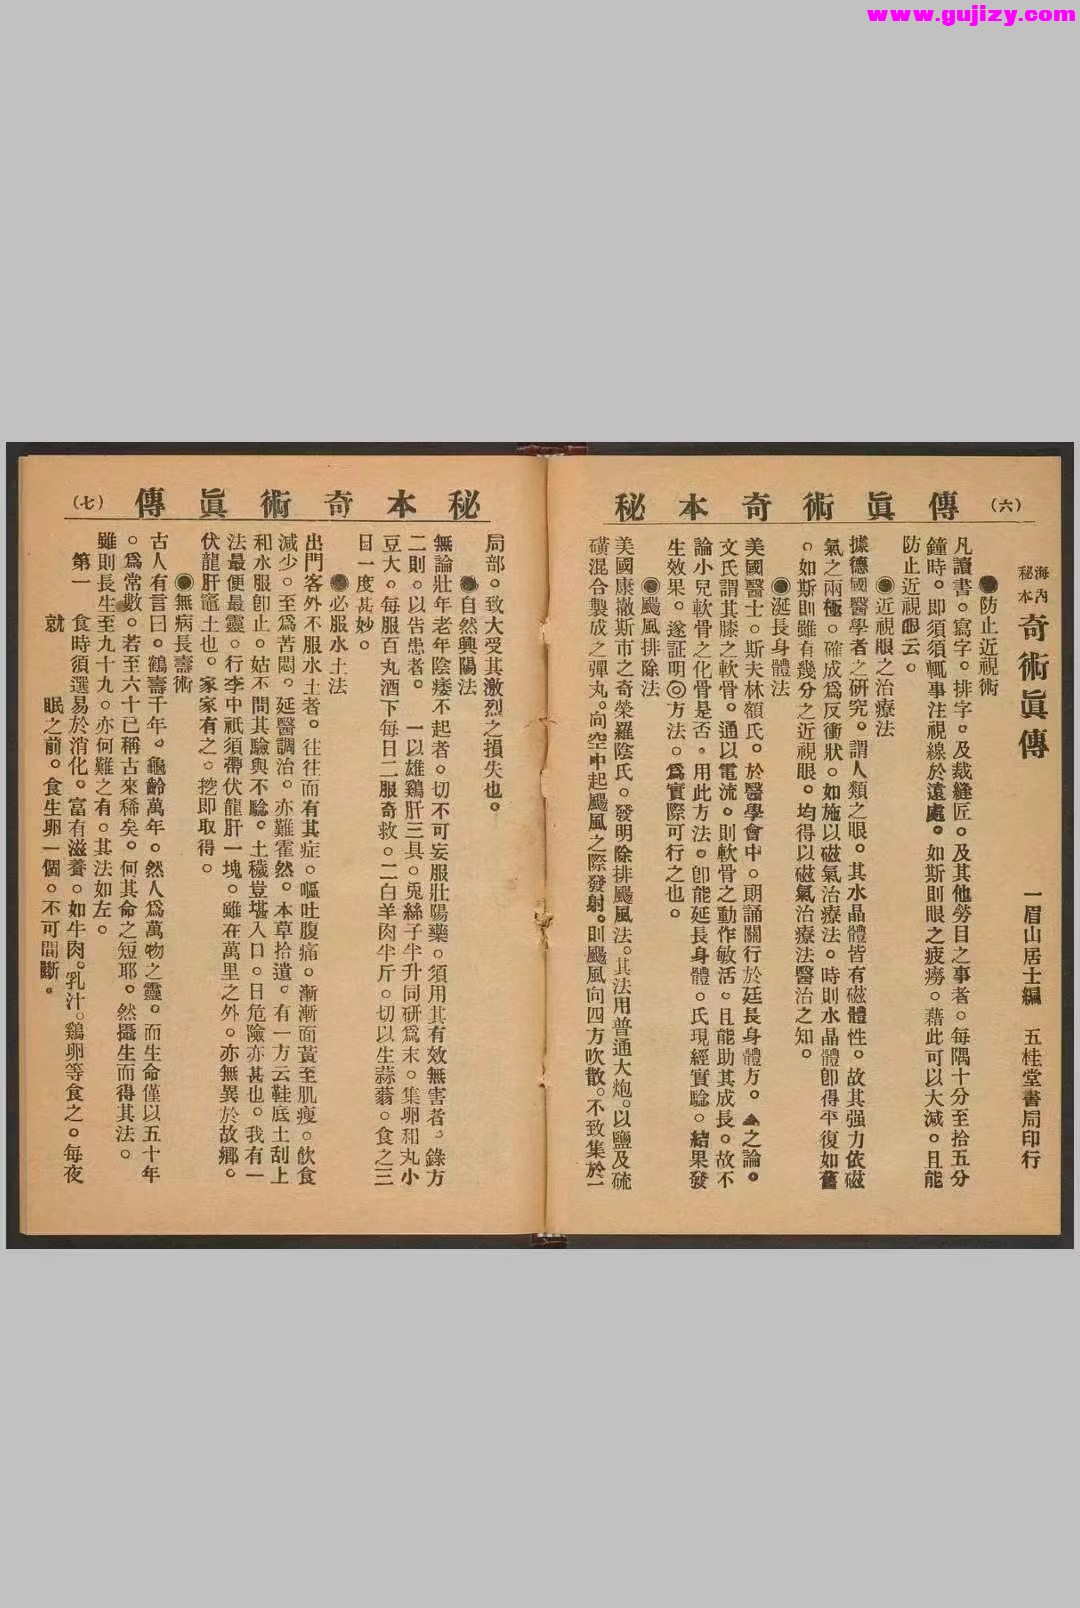 www.gujizy.com
（六）
秘本奇術眞傳
海內
秘本
奇術眞傳　一眉山居士編　五桂堂書局印行
●防止近視術
凡讀書。寫字。排字。及裁縫匠。及其他勞目之事者。每隅十分至拾五分
鐘時。即須須輒事注視線於遠處。如斯則眼之疲癆。藉此可以大減。且能
防止近視眼云。
◉近視眼之治療法
據德國醫學者之研究。謂人類之眼。其水晶體皆有磁體性。故其强力依磁
氣之兩極。確成爲反衝狀。如施以磁氣治療法。時則水晶體卽得平復如舊
。如斯則雖有幾分之近視眼。均得以磁氣治療法醫治之知。
◉涎長身體法
美國醫士。斯夫林額氏。於醫學會中。朗誦關行於廷長身體方。▲之論。
文氏謂其膝之軟骨。通以電流。則軟骨之動作敏活。且能助其成長。故不
論小兒軟骨之化骨是否。用此方法。卽能延長身體。氏現經實騐。結果發
生效果。遂証明◎方法。爲實際可行之也。
◉颶風排除法
美國康撤斯市之奇榮羅陰氏。發明除排颶風法。其法用普通大炮。以鹽及硫
磺混合製成之彈丸。向空中起颶風之際發射。則颶風向四方吹散。不致集於一
秘本奇術眞傳
（七）
局部。致大受其激烈之損失也。
●自然興陽法
無論壯年老年陰痿不起者。切不可妄服壯陽藥。須用其有效無害者。錄方
二則。以告患者。　一以雄鷄肝三具。兎絲子半升同硏爲末。集卵和丸小
豆大。每服百丸酒下每日二服奇救。二白羊肉半斤。切以生蒜薤。食之三
日一度甚妙。
●必服水土法
出門客外不服水土者。往往而有其症。嘔吐腹痛。漸漸面黃至肌瘦。飮食
減少。至爲苦悶。延醫調治。亦難霍然。本草拾遺。有一方云鞋底土刮上
和水服卽止。姑不問其驗與不騐。土穢豈堪入口。日危險亦甚也。我有一
法最便最靈。行李中祇須帶伏龍肝一塊。雖在萬里之外。亦無異於故鄕。
伏龍肝竈土也。家家有之。挖即取得。
◉無病長壽術
古人有言曰。鶴壽千年。龜齡萬年。然人爲萬物之靈。而生命僅以五十年
。爲常數。若至六十已稱古來稀矣。何其命之短耶。然攝生而得其法。
雖則長生至九十九。亦何難之有。其法如左。
第一　食時須選易於消化。富有滋養。如牛肉。乳汁。鷄卵等食之。每夜
就　眠之前。食生卵一個。不可間斷。